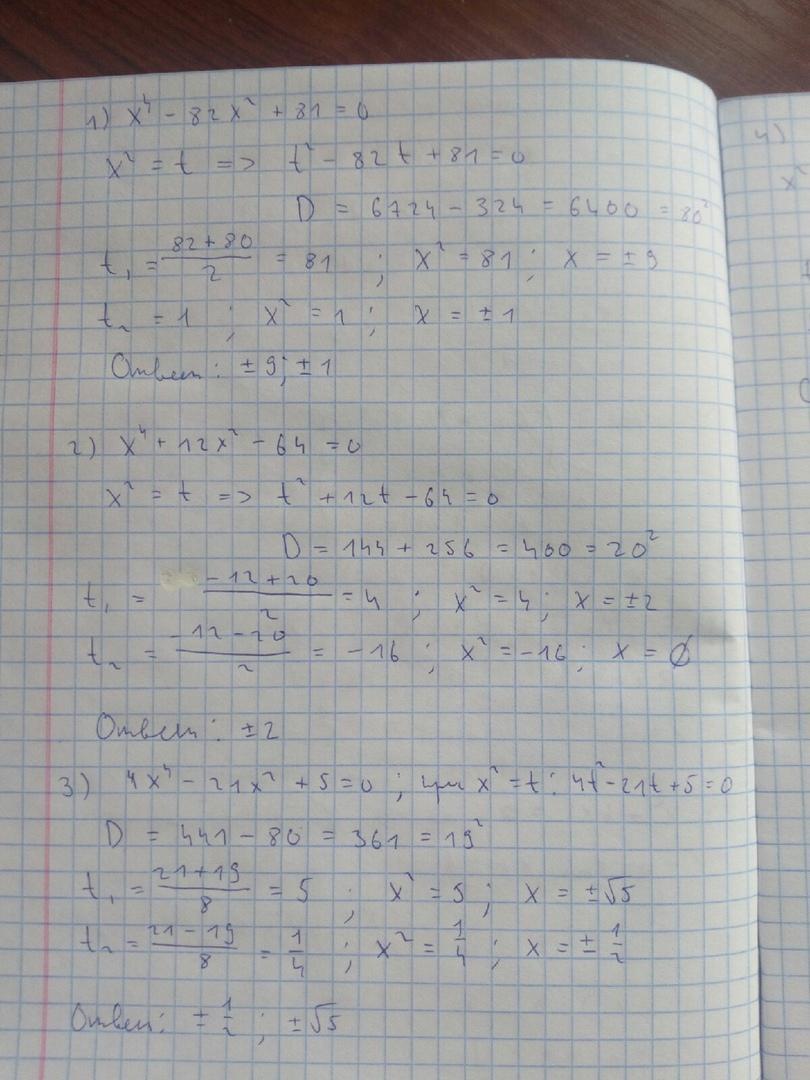 1) x⁴ - 82x² + 81 = 0
x² = t => t² - 82t + 81 = 0
D = 6724 - 324 = 6400 = 80²
t₁ = (82+80)/2 = 81 ; x² = 81 ; x = ±9
t₂ = 1 ; x² = 1 ; x = ±1
Ответ: ±9; ±1
2) x⁴ + 12x² - 64 = 0
x² = t => t² + 12t - 64 = 0
D = 144 + 256 = 400 = 20²
t₁ = (-12+20)/2 = 4 ; x² = 4 ; x = ±2
t₂ = (-12-20)/2 = -16 ; x² = -16 ; x = ∅
Ответ: ±2
3) 4x⁴ - 21x² + 5 = 0 ; при x² = t : 4t² - 21t + 5 = 0
D = 441 - 80 = 361 = 19²
t₁ = (21+19)/8 = 5 ; x² = 5 ; x = ±√5
t₂ = (21-19)/8 = 1/4 ; x² = 1/4 ; x = ± 1/2
Ответ: ± 1/2 ; ±√5
4)